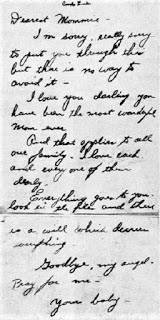 Dearest Mommie -
I'm sorry, really sorry
to put you through this
but there is no way to
avoid it -
I love you darling you
have been the most wonderful
Mom ever
And that applies to all
our family. I love each
and every one of them
dearly.
Everything goes to you -
look in the file and there
is a will which decrees
everything
Goodbye, my angel.
Pray for me -
Your baby -